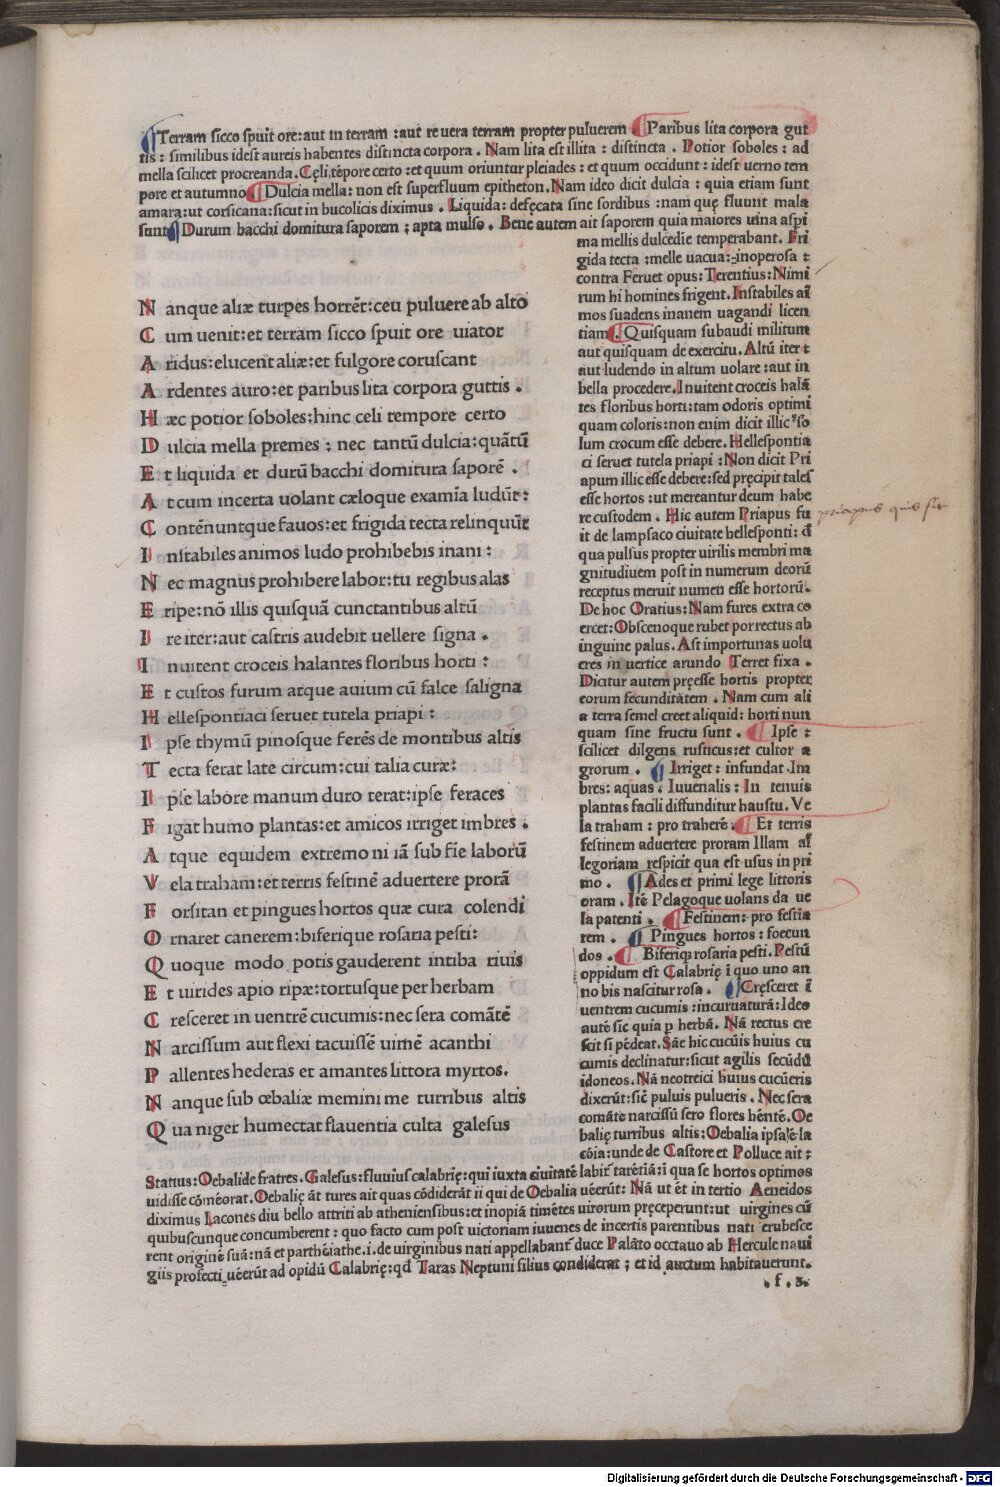 Terram sicco spuit ore: aut in terram : aut re uera terram propter puluerem Paribus lita corpora gut
tis : similibus idest aureis habentes distincta corpora . Nam lita est illita : distincta . Potior soboles : ad
mella scilicet procreanda. Cęli tēpore certo : et quum oriuntur pleiades : et quum occidunt : idest uerno tem
pore et autumno Dulcia mella: non est superfluum epitheton. Nam ideo dicit dulcia : quia etiam sunt
amara: ut corsicana: sicut in bucolicis diximus . Liquida: defęcata sine sordibus : nam quę fluunt mala
sunt Durum bacchi domitura saporem ; apta mulso . Bene autem ait saporem quia maiores uina aspi
Nanque aliæ turpes horrēt: ceu puluere ab alto
Cum uenit: et terram sicco spuit ore uiator
Aridus: elucent aliæ: et fulgore coruscant
Ardentes auro: et paribus lita corpora guttis .
Hæc potior soboles: hinc celi tempore certo
Dulcia mella premes : nec tantū dulcia: quātū
Et liquida et durū bacchi domitura saporē .
At cum incerta uolant cæloque examīa ludūt:
Contēnuntque fauos: et frigida tecta relinquūt
Instabiles animos ludo prohibebis inani :
Nec magnus prohibere labor: tu regibus alas
Eripe: nō illis quisquā cunctantibus altū
Ire iter: aut castris audebit uellere signa .
Inuitent croceis halantes floribus horti :
Et custos furum atque auium cū falce saligna
Hellespontiaci seruet tutela priapi :
Ipse thymū pinosque ferēs de montibus altis
Tecta ferat late circum: cui talia curæ:
Ipse labore manum duro terat: ipse feraces
Figat humo plantas: et amicos irriget imbres .
Atque equidem extremo ni iā sub fīe laborū
Vela traham: et terris festinē aduertere prorā
Forsitan et pingues hortos quæ cura colendi
Ornaret canerem: biferique rosaria pesti:
Quoque modo potis gauderent intiba riuis
Et uirides apio ripæ: tortusque per herbam
Cresceret in uentrē cucumis: nec sera comātē
Narcissum aut flexi tacuissē uimē acanthi
Pallentes hederas et amantes littora myrtos.
Nanque sub œbaliæ memini me turribus altis
Qua niger humectat flauentia culta galesus
ma mellis dulcedie temperabant. Fri
gida tecta : melle uacua: inoperosa :
contra Feruet opus: Terentius: Nimi
rum hi homines frigent. Instabiles ai
mos suadens inanem uagandi licen
tiam. Quisquam subaudi militum
aut quisquam de exercitu. Altū iter :
aut ludendo in altum uolare : aut in
bella procedere. Inuitent croceis halā
tes floribus horti: tam odoris optimi
quam coloris: non enim dicit illic so
lum crocum esse debere. Hellespontia
ci seruet tutela priapi : Non dicit Pri
apum illic esse debere: sed pręcipit tales
esse hortos : ut mereantur deum habe
re custodem . Hic autem Priapus fu
it de lampsaco ciuitate hellesponti: d̄
qua pulsus propter uirilis membri ma
gnitudiuem post in numerum deorū
receptus meruit numen esse hortorū.
De hoc Oratius: Nam fures extra co
ercet: Obscenoque rubet porrectus ab
inguine palus. Ast importunas uolu
cres in uertice arundo Terret fixa .
Dicitur autem pręesse hortis propter
eorum fecunditātem . Nam cum ali
a terra semel creet aliquid: horti nun
quam sine fructu sunt . Ipse :
scilicet dilgens rusticus: et cultor a
grorum . Irriget : infundat . Im
bres: aquas. Iuuenalis : In tenuis
plantas facili diffunditur haustu. Ve
la traham : pro traherē. Et terris
festinem aduertere proram Illam al
legoriam respicit qua est usus in pri
mo . Ades et primi lege littoris
oram. Itē Pelagoque uolans da ue
la patenti . Festinem: pro festia
rem . Pingues hortos: foecun
dos . Biferiq; rosaria pesti. Pestū
oppidum est Calabrię ī quo uno an
no bis nascitur rosa . Cręsceret ī
uentrem cucumis : incuruaturā: Ideo
autē sic quia p herbā. Nā rectus cre
scit si pēdeat. Sāe hic cucūis huius cu
cumis declinatur: sicut agilis secūdū
idoneos. Nā neotreici huius cucūeris
dixerūt: sic̄ puluis pulueris . Nec sera
comāte narcissū sero flores hēntē. Oe
balię turribus altis: Oebalia ipsa ē la
cōia: unde de Castore et Polluce ait :
priapus quis sit
Statius: Oebalide fratres. Galesus: fluuius calabrię: qui iuxta ciuitatē labit tarētiā: ī qua se hortos optimos
uidisse cōmēorat. Oebalię āt tures ait quas cōdiderāt ii qui de Oebalia uēerūt: Nā ut ēt in tertio Aeneidos
diximus Lacones diu bello attriti ab atheniensibus: et inopiā timētes uirorum pręceperunt: ut uirgines cū
quibuscunque concumberent : quo facto cum post uictoriam iuuenes de incertis parentibus nati erubesce
rent originē suā: nā et parthēiathe .i. de uirginibus nati appellabant duce Palāto occtauo ab Hercule naui
giis profecti uēerūt ad opidū Calabrię: qd̄ Taras Neptuni filius condiderat ; et id auctum habitauerunt.
. f . 3.
Digitalisierung gefördert durch die Deutsche Forschungsgemeinschaft - DFG